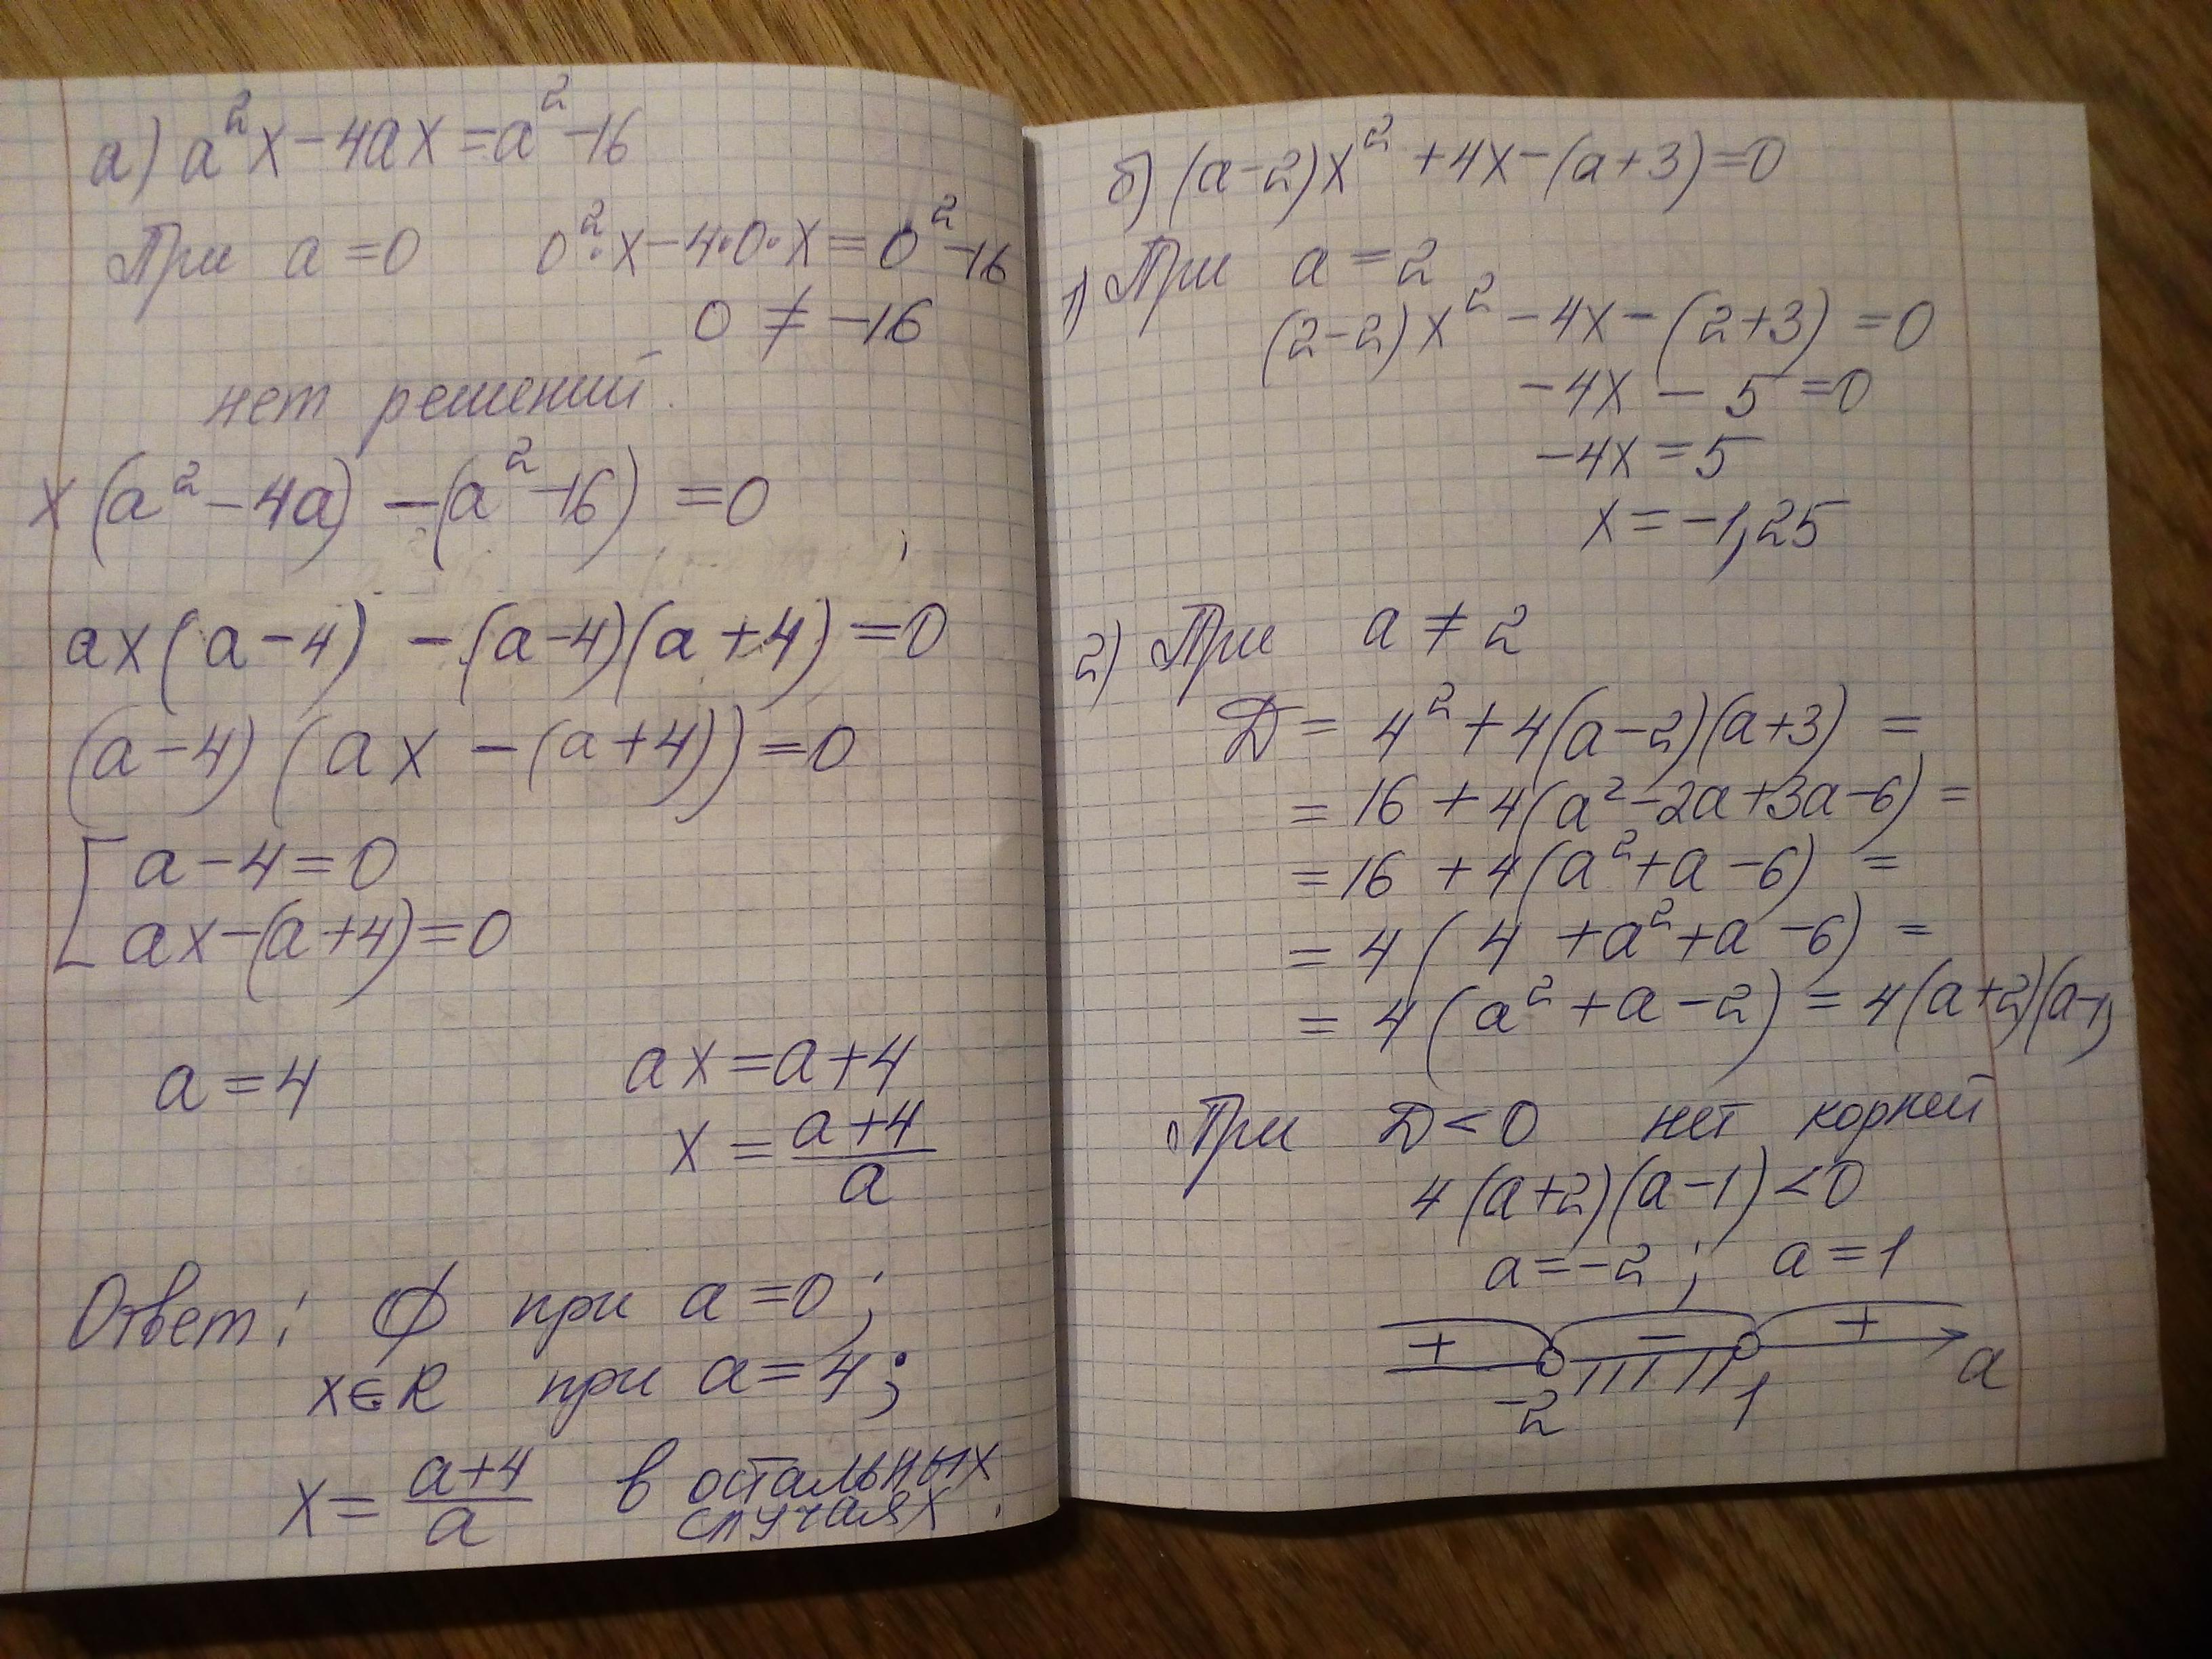 а) a²x-4ax=a²-16
При a=0 0²·x-4·0·x=0²-16
0 ≠ -16
нет решений.
x(a²-4a)-(a²-16)=0
ax(a-4)-(a-4)(a+4)=0
(a-4)(ax-(a+4))=0
[a-4=0
ax-(a+4)=0
a=4 ax=a+4
x=(a+4)/a
Ответ: ∅ при a=0;
x∈R при a=4;
x=(a+4)/a в остальных
случаях.
б) (a-2)x²+4x-(a+3)=0
1) При a=2
(2-2)x²-4x-(2+3)=0
-4x-5=0
-4x=5
x=-1,25
2) При a≠2
D=4²+4(a-2)(a+3)=
=16+4(a²-2a+3a-6)=
=16+4(a²+a-6)=
=4(4+a²+a-6)=
=4(a²+a-2)=4(a+2)(a-1)
При D<0 нет корней
4(a+2)(a-1)<0
a=-2; a=1
+ - +
-2 1 a